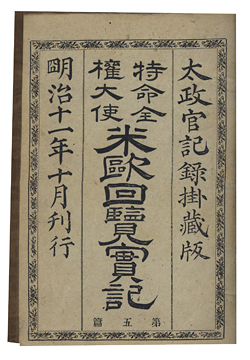 太政官記録掛藏版
特命全
權大使
米歐回覽實記
第五篇
明治十一年十月刊行